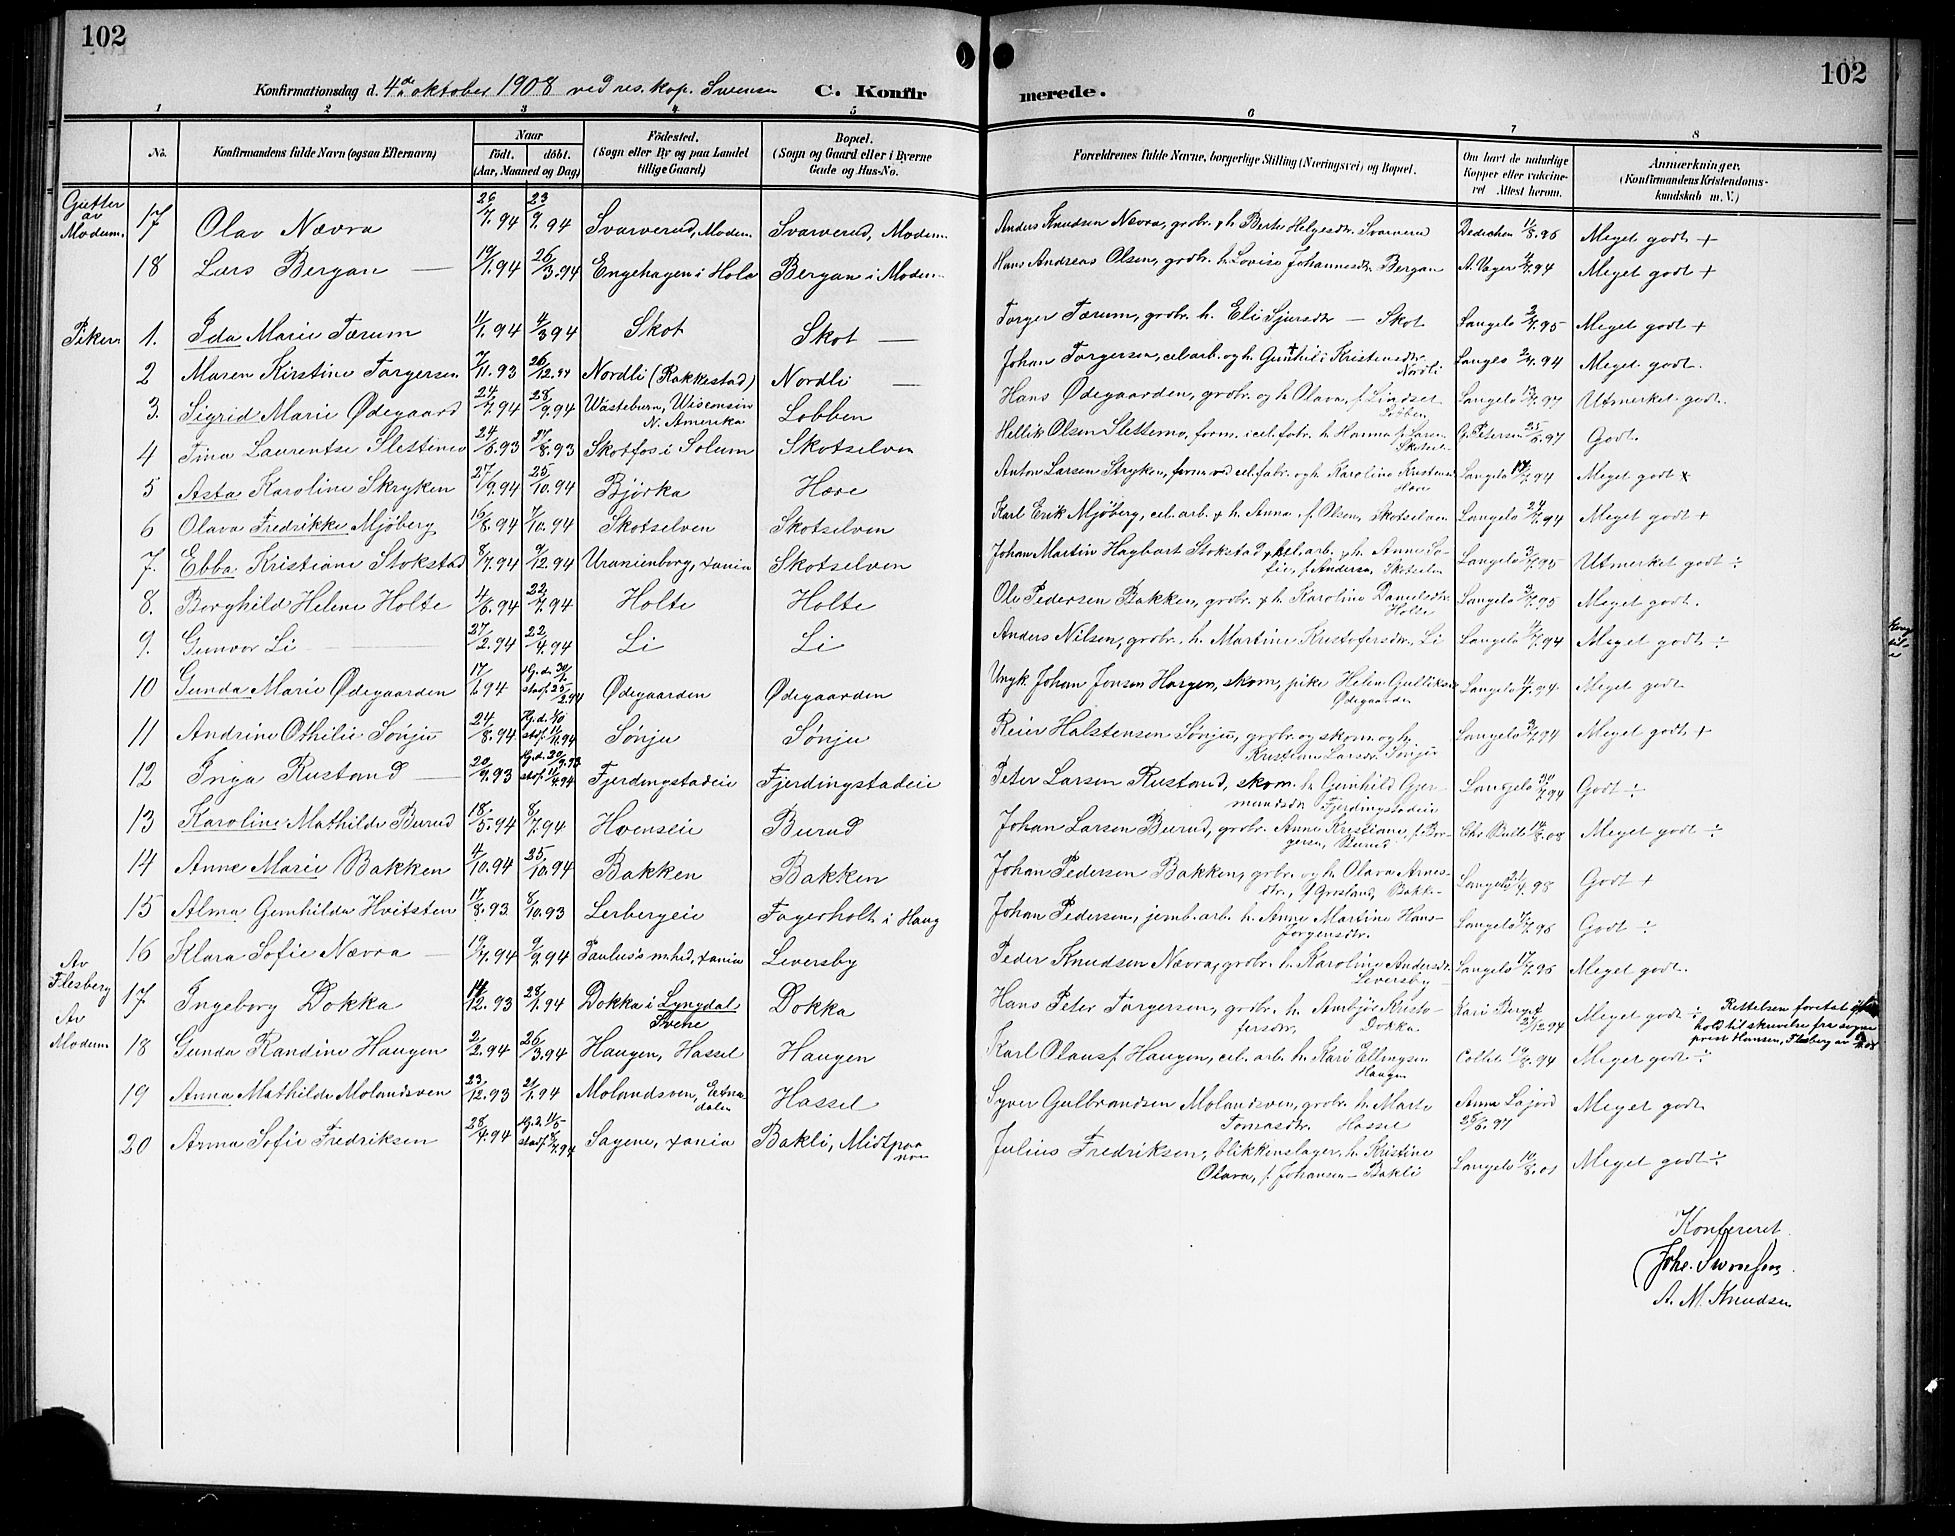 102
Konfirmationsdag d. 4de oktober 1908 ved res. kap. C. Konfir
1 2 3 4 5
No. Konfirmandens fulde Navn (ogsaa Efternavn) Naar født. døbt. (Aar, Maaned og Dag) Fødested. (Sogn eller By og paa Landet tillige Gaard) Bopæl. (Sogn og Gaard eller i Byerne Gade og Hus-No.
Gutter av Modum. 17 Olav Nævra 26/7.94 23/9.94 Svarverud, Modum. Svarverud, Modum.
18 Lars Bergan — 19/1.94 26/3.94 Engehagen i Hola Bergan i Modum.
Piker. 1. Ida Marie Tærum 11/1.94 4/3 94 Skot Skot —
2 Maren Kirstine Torgersen 7/11.93 26/12.94 Nordli (Rakkestad) Nordli —
3. Sigrid Marie Ødegaard 24/7.94 28/9.94 Wasteburn, Wisconsin N. Amerika Lobben
4 Tina Laurentse Slettemo 24/6.93 27/8.93 Skotfos i Solum Skotselven
5 Asta Karoline Skryken 27/9.94 25/10.94 Bjørka Hære
6 Olava Fredrikke Mjøberg 16/8.94 7/10.94 Skotselven Skotselven
7. Ebba Kristiane Stokstad 8/7.94 9/12.94 Uranienborg, xania Skotselven
8. Borghild Helene Holte 4/6.94 22/7.94 Holte Holte
9. Gunvor Li — 27/2.94 22/4.94 Li Li
10 Gunda Marie Ødegaarden 17/1.94 Hj.d. 30/1 stadf. 25/2.94 Ødegaarden Ødegaarden
11 Andrine Othilie Sønju 24/8.94 Hj.d. 1/10 stadf. 11/11.94 Sønju Sønju
12 Inga Rustand — 20/9.93 Hj.d. 22/9.93 Fjerdingstadeie Fjerdingstadeie
13 Karoline Mathilde Burud 18/5.94 8/7.94 Hvenseie Burud
14 Anne Marie Bakken 4/10.94 25/10.94 Bakken Bakken
15 Alma Gemhilda Hvitsten 17/8.93 8/10.93 Lerbergeie Fagerholt i Haug
16 Klara Sofie Nævra — 19/7.94 9/9.94 Paulus's m.hed, xania Leversby
Av Flesberg 17 Ingeborg Dokka 14/12.93 28/1.94 Dokka i Lyngdal. Svene Dokka
Av Modum 18 Gunda Randine Haugen 2/2.94 26/3.94 Haugen, Hassel Haugen
19 Anna Mathilde Molandsven 23/12.93 21/1.94 Molandsven, Etnadalen Hassel
20 Anna Sofie Fredriksen 28/4.94 Hj.d. 11/5 Sagene, xania Bakli, Midt
102
merede.
6 7 8
Forældrenes fulde Navne, borgerlige Stilling (Næringsvei) og Bopæl. Om havt de naturlige Kopper eller vakcineret Attest herom. Anmærkninger. (Konfirmandens Kristendomskundskab m. V.)
Anders Knudsen Nævra, grdbr. & h. Berte Helgesdtr. Svarverud Dedichen 11/8.96 Meget godt +
Hans Andreas Olsen, grdbr. h. Lovise Johannesdtr. Bergan Meget godt +
Torger Tærum, grdbr. h. Eli Sjursdtr — Skot Langelo 2/7.95 Meget godt +
Johan Torgersen, cel.arb. og h. Gunhild Kristensdtr. Nordli Meget godt.
Hans Ødegaarden, grdbr. og h. Olava, f. Lindset Lobben Utmerket godt.
Hellik Olsen Slettemo, form. i cel.fabr. h. Hanna f. Larsen Godt.
Anton Larsen Stryken, form. ved cel.fabr. og h. Karoline Hære Meget godt
Karl Erik Mjøberg, cel.arb. & h. Anna f. Olsen, Skotselven Langelo 24/7.94 Meget godt +
Johan Martin Hagbart Stokstad, cel.arb. & h. Anne Sofie, f. Andersen, Utmerket godt ÷
Ole Pedersen Bakken, grdbr. & h. Karoline Danielsdtr. Holte Meget godt.
Anders Nilsen, grdbr. h. Martine Kristofersdtr. Li Meget godt ÷
Ungk. Johan Jonsen Horgen, skom, pike Helene Gulliksdtr Ødegaarden Meget godt
Reier Halstensen Sønju, grdbr. og skom. og h. Kristiane Larsdtr Sønju Meget godt +
Peter Larsen Rustand, skom. h. Gunhild Gjermundsdtr. Fjerdingstadeie Godt ÷
Johan Larsen Burud, grdbr. Anne Kristiane, f. Borgersen, Burud Meget godt ÷
Johan Pedersen Bakken, grbr. og h. Olava Arnesdtr., Bakken Godt +
Johan Pedersen, jernb.arb. h. Anne Martine Hans-Jørgensdtr. Godt ÷
Peder Knudsen Nævra, grdbr. h. Karoline Andersdtr. Leversby Meget godt.
Hans Peter Torgersen, grdbr. h. Ambjør Kristofersdtr, Dokka Meget godt ÷ Rettelsen foretat hold til skrivelse fra sogneprest Hansen, Flesberg
Karl Olaus Haugen, cel.arb. h. Karo Ellingsen Haugen Meget godt ÷
Syver Gulbrandsen Molandsven, grdbr. h. Marte Tomasdtr. Hassel Anna Lajord 25/6.97 Meget godt
Julius Fredriksen, blikkenslager, h. Kristine Olava, f. Johansen – Bakli Meget godt ÷
Konfereret
A. M. Knudsen